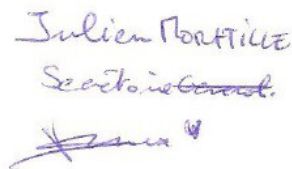 Julien MORATILLE
Secrétaire General.